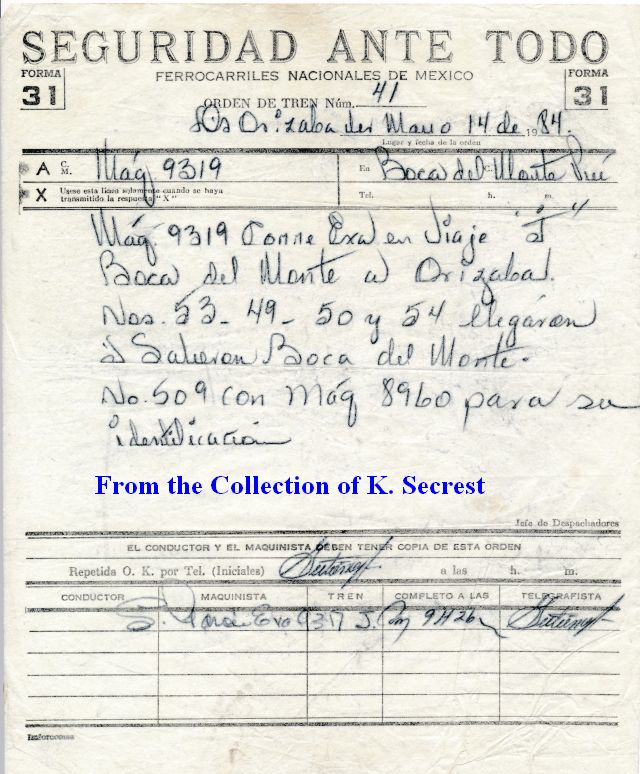 SEGURIDAD ANTE TODO
FORMA 31
FERROCARRILES NACIONALES DE MEXICO
FORMA 31
ORDEN DE TREN Núm. 41
Orizaba Ver Mayo 14 de 1984.
Lugar y fecha de la orden
A C. M. Máq 9319 En Boca del Monte
X Usese esta línea solamente cuando se haya transmitido la respuesta "X" Tel. h. m.
Máq. 9319 Corre Exa en Viaje
Boca del Monte a Orizaba.
Nos. 53- 49- 50 y 54 llegaron
Salieron Boca del Monte.
No. 509 con Máq 8960 para su
identificación
From the Collection of K. Secrest
Jefe de Despachadores
EL CONDUCTOR Y EL MAQUINISTA DEBEN TENER COPIA DE ESTA ORDEN
Repetida O. K. por Tel. (Iniciales) a las h. m.
CONDUCTOR MAQUINISTA TREN COMPLETO A LAS TELEGRAFISTA
Exa